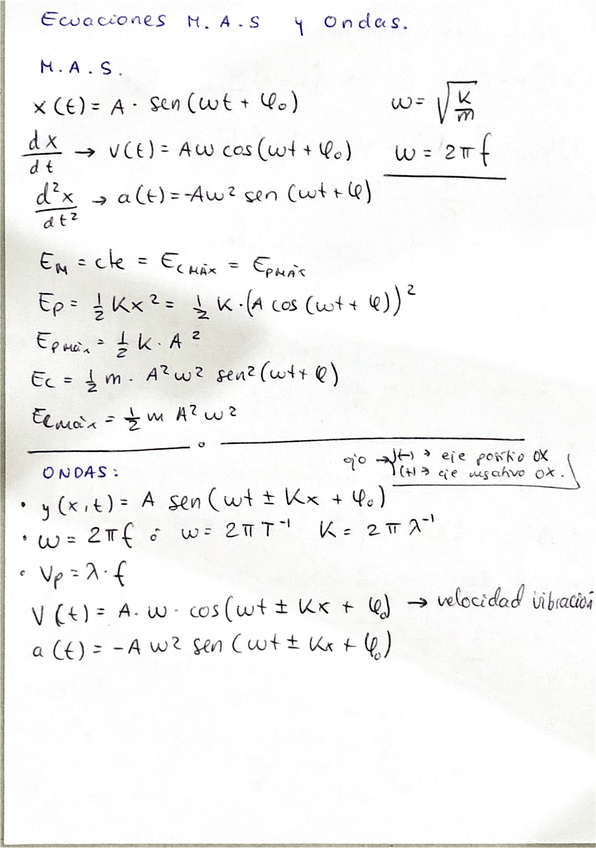 Ecuaciones M.A.S y Ondas.
M.A.S.
x(t) = A · sen(ωt + φ₀)
ω = √(K/m)
dx/dt → v(t) = Aω cos(ωt + φ₀)
ω = 2πf
d²x/dt² → a(t) = -Aω² sen(ωt + φ)
E_M = cte = E_cMÁX = E_pMÁX
Ep = ½ Kx² = ½ K·(A cos(ωt + φ))²
E_pmáx = ½ K · A²
Ec = ½ m · A²ω² sen²(ωt + φ)
E_cmáx = ½ m A² ω²
ojo → (-) → eje positivo OX
(+) → eje negativo OX.
ONDAS:
· y(x,t) = A sen(ωt ± Kx + φ₀)
· ω = 2πf ó ω = 2πT⁻¹ K = 2πλ⁻¹
· Vp = λ·f
V(t) = A·ω·cos(ωt ± Kx + φ₀) → velocidad vibración
a(t) = -A ω² sen(ωt ± Kx + φ₀)